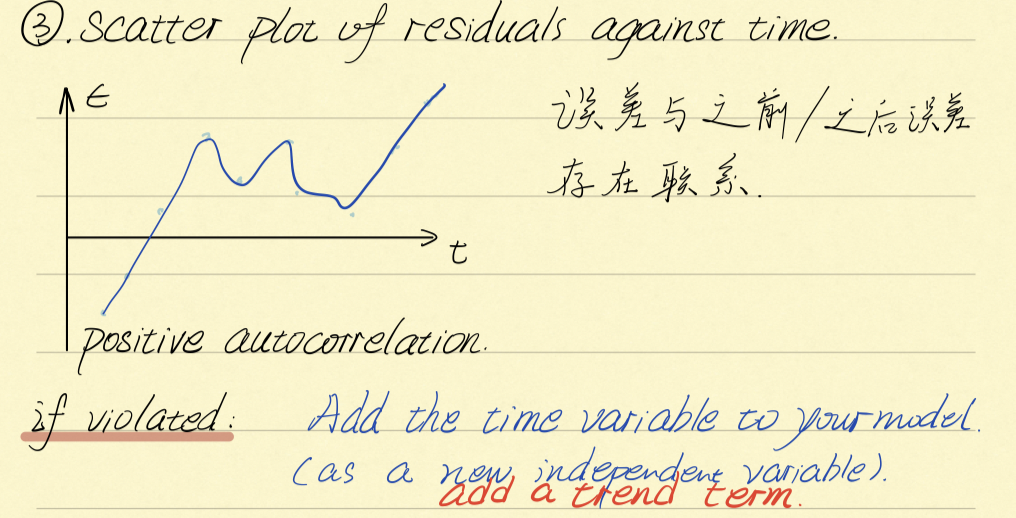 ③. Scatter plot of residuals against time.
ϵ
误差与之前/之后误差
存在联系.
t
positive autocorrelation.
if violated: Add the time variable to your model.
(as a new independent variable).
add a trend term.